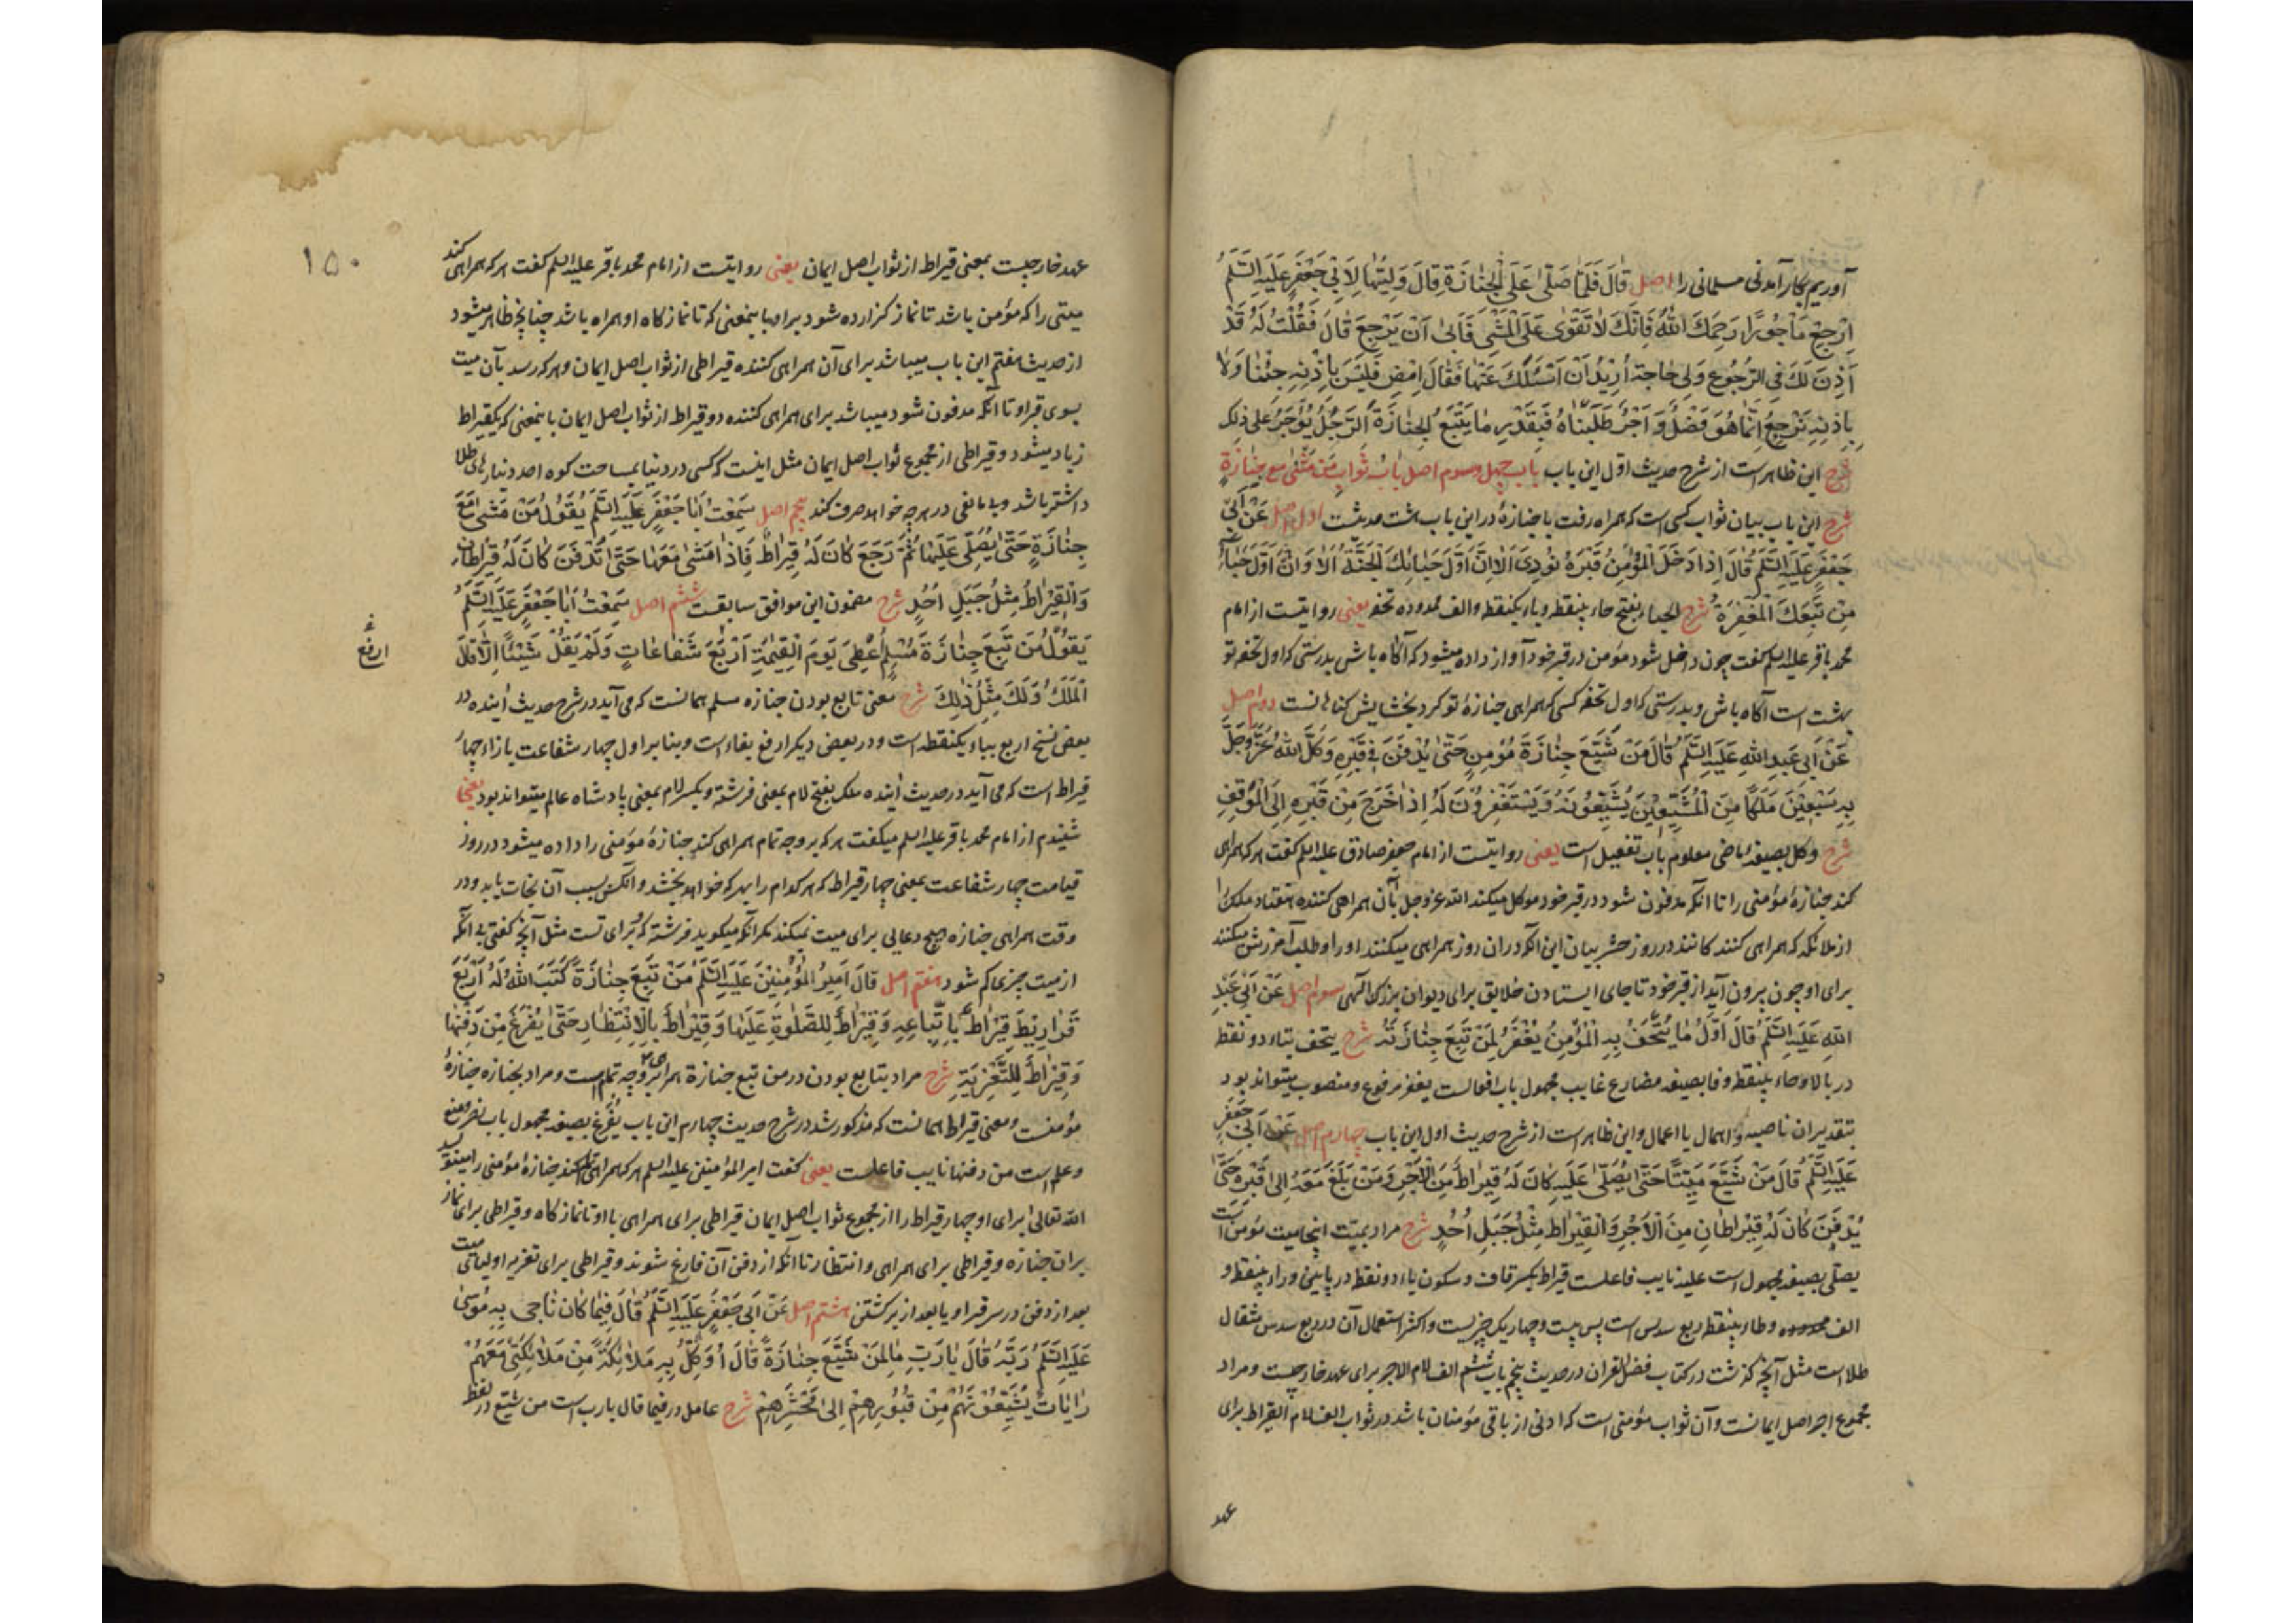 آوریم بکار آمدنی مسلمانی را اصل قَالَ فَلَمَّا صَلَّىٰ عَلَى الْجَنَازَةِ قَالَ وَلِيُّهَا لِأَبِي جَعْفَرٍ عَلَيْهِ السَّلَمُ
اِرْجِعْ مَأْجُورًا رَحِمَكَ اللهُ فَإِنَّكَ لَا تَقْوَى عَلَى الْمَشْيِ فَأَبَىٰ أَنْ يَرْجِعَ قَالَ فَقُلْتُ لَهُ قَدْ
أَذِنَ لَكَ فِي الرُّجُوعِ وَلِي حَاجَةٌ أُرِيدُ أَنْ أَسْئَلَكَ عَنْهَا فَقَالَ امْضِ فَلَيْسَ بِإِذْنِهِ جِئْنَا وَلَا
بِإِذْنِهِ نَرْجِعُ إِنَّمَا هُوَ فَضْلٌ وَأَجْرٌ طَلَبْنَاهُ فَبِقَدْرِ مَا يَتْبَعُ الْجِنَازَةَ الرَّجُلُ يُؤْجَرُ عَلَى ذٰلِكَ
شرح این ظاهر است از شرح حدیث اوّل این باب باب چهل و سوم اصل بَابُ ثَوَابِ مَنْ مَشَىٰ مَعَ جِنَازَةٍ
شرح این باب بیان ثواب کسی است که همراه رفت با جنازهٔ در این باب هشت حدیثست اول اصل عَنْ أَبِي
جَعْفَرٍ عَلَيْهِ السَّلَمُ قَالَ إِذَا دَخَلَ الْمُؤْمِنُ قَبْرَهُ نُودِيَ أَلَا إِنَّ أَوَّلَ حِبَائِكَ الْجَنَّةُ أَلَا وَإِنَّ أَوَّلَ حِبَاءِ
مَنْ تَبِعَكَ الْمَغْفِرَةُ شرح الحباء بفتح حاء بینقطه و باء یکنقطه و الف ممدوده تحفه یعنی روایتست از امام
محمد باقر علیه السلم گفت چون داخل شود مؤمن در قبر خود آواز داده میشود که آگاه باش بدرستی که اول تحفه تو
بهشت است آگاه باش و بدرستی که اول تحفه کسی که همراهی جنازهٔ تو کرد بخشایش گناهانست دوم اصل
عَنْ أَبِي عَبْدِ اللهِ عَلَيْهِ السَّلَمُ قَالَ مَنْ شَيَّعَ جِنَازَةَ مُؤْمِنٍ حَتَّىٰ يُدْفَنَ فِي قَبْرِهِ وَكَّلَ اللهُ عَزَّ وَجَلَّ
بِهِ سَبْعِينَ مَلَكًا مِنَ الْمُشَيِّعِينَ يُشَيِّعُونَهُ وَيَسْتَغْفِرُونَ لَهُ إِذَا خَرَجَ مِنْ قَبْرِهِ إِلَى الْمَوْقِفِ
شرح وکل بصیغهٔ ماضی معلوم باب تفعیل است یعنی روایتست از امام جعفر صادق علیه السلم گفت هر که همراهی
کند جنازهٔ مؤمنی را تا آنکه مدفون شود در قبر خود موکل میکند الله عز وجل بآن همراهی کننده هفتاد ملک را
از ملائکه که همراهی کنند کانند در روز حشر بیان این آنکه در ان روز همراهی میکنند او را و طلب آمرزش میکنند
برای او چون بیرون آید از قبر خود تا جای ایستادن خلایق برای دیوان بزرگ الهی سوم اصل عَنْ أَبِي عَبْدِ
اللهِ عَلَيْهِ السَّلَمُ قَالَ أَوَّلُ مَا يُتْحَفُ بِهِ الْمُؤْمِنُ يُغْفَرُ لِمَنْ تَبِعَ جِنَازَتَهُ شرح یتحف بتاء دو نقطه
در بالا و حاء بینقطه و فا بصیغه مضارع غایب مجهول باب افعالست یغفر مرفوع و منصوب میتواند بود
بتقدیر ان ناصبه و اهمال یا اعمال و این ظاهر است از شرح حدیث اول این باب چهارم اصل عَنْ أَبِي جَعْفَرٍ
عَلَيْهِ السَّلَمُ قَالَ مَنْ شَيَّعَ مَيِّتًا حَتَّىٰ يُصَلَّىٰ عَلَيْهِ كَانَ لَهُ قِيرَاطٌ مِنَ الْأَجْرِ وَمَنْ بَلَغَ مَعَهُ إِلَىٰ قَبْرِهِ حَتَّىٰ
يُدْفَنَ كَانَ لَهُ قِيرَاطَانِ مِنَ الْأَجْرِ وَالْقِيرَاطُ مِثْلُ جَبَلِ أُحُدٍ شرح مراد بمیّت اینجا میت مؤمن است
یصلّی بصیغه مجهول است علیه نایب فاعلست قیراط بکسر قاف و سکون یاء دو نقطه در پایین و راء بینقطه و
الف ممدوده و طاء بینقطه ربع سدس است پس بیست و چهار یک چیزیست و اکثر استعمال آن در ربع سدس مثقال
طلا است مثل آنچه گذشت در کتاب فضل القران در حدیث پنجم باب ششم الف لام الاجر برای عهد خارجیست و مراد
مجموع اجر اصل ایمانست و آن ثواب مؤمنی است که ادنی از باقی مؤمنان باشد در ثواب الف لام القیراط برای
عهد
۱۵۰
عهد خارجیست بمعنی قیراط از ثواب اصل ایمان یعنی روایتست از امام محمد باقر علیه السلم گفت هر که همراهی کند
میتی را که مؤمن باشد تا نماز گزارده شود بر او باینمعنی که تا نماز گاه او همراه باشد چنانچه ظاهر میشود
از حدیث هفتم این باب میباشد برای آن همراهی کننده قیراطی از ثواب اصل ایمان و هر که رسد بآن میت
بسوی قبر او تا آنکه مدفون شود میباشد برای همراهی کننده دو قیراط از ثواب اصل ایمان باینمعنی که یکقیراط
زیاد میشود و قیراطی از مجموع ثواب اصل ایمان مثل اینست که کسی در دنیا بمساحت کوه احد دینارهای طلا
داشته باشد و بی مانعی در هر چه خواهد صرف کند پنجم اصل سَمِعْتُ أَبَا جَعْفَرٍ عَلَيْهِ السَّلَمُ يَقُولُ مَنْ مَشَىٰ مَعَ
جِنَازَةٍ حَتَّىٰ يُصَلَّىٰ عَلَيْهَا ثُمَّ رَجَعَ كَانَ لَهُ قِيرَاطٌ فَإِذَا مَشَىٰ مَعَهَا حَتَّىٰ تُدْفَنَ كَانَ لَهُ قِيرَاطَانِ
وَالْقِيرَاطُ مِثْلُ جَبَلِ أُحُدٍ شرح مضمون این موافق سابقست ششم اصل سَمِعْتُ أَبَا جَعْفَرٍ عَلَيْهِ السَّلَمُ
يَقُولُ مَنْ تَبِعَ جِنَازَةَ مُسْلِمٍ أُعْطِيَ يَوْمَ الْقِيٰمَةِ أَرْبَعَ شَفَاعَاتٍ وَلَمْ يَقُلْ شَيْئًا إِلَّا قَالَ
ارفع
الْمَلَكُ وَلَكَ مِثْلُ ذٰلِكَ شرح معنی تابع بودن جنازه مسلم همانست که می آید در شرح حدیث آینده در
بعض نسخ اربع بباء یکنقطه است و در بعضی دیگر ارفع بفاء است و بنا بر اول چهار شفاعت بازاء چهار
قیراط است که می آید در حدیث آینده ملک بفتح لام بمعنی فرشته و بکسر لام بمعنی پادشاه عالم میتواند بود یعنی
شنیدم از امام محمد باقر علیه السلم میگفت هر که بر وجه تمام همراهی کند جنازهٔ مؤمنی را داده میشود در روز
قیامت چهار شفاعت بمعنی چهار قیراط که هر کدام را بهر که خواهد بخشد و آنکس بسبب آن نجات یابد و در
وقت همراهی جنازه هیچ دعایی برای میت نمیکند مگر آنکه میگوید فرشته که برای تست مثل آنچه گفتی بی آنکه
از میت چیزی کم شود هفتم اصل قَالَ أَمِيرُ الْمُؤْمِنِينَ عَلَيْهِ السَّلَمُ مَنْ تَبِعَ جِنَازَةً كَتَبَ اللهُ لَهُ أَرْبَعَ
قَرَارِيطَ قِيرَاطٌ بِاتِّبَاعِهِ وَقِيرَاطٌ لِلصَّلٰوةِ عَلَيْهَا وَقِيرَاطٌ بِالْاِنْتِظَارِ حَتَّىٰ يُفْرَغَ مِنْ دَفْنِهَا
وَقِيرَاطٌ لِلتَّعْزِيَةِ شرح مراد بتابع بودن در من تبع جنازة همراهی بر وجه تمامست و مراد بجنازه جنازهٔ
مؤمنست و معنی قیراط همانست که مذکور شد در شرح حدیث چهارم این باب یُفرغ بصیغه مجهول باب نصر و منع
و علم است من دفنها نایب فاعلست یعنی گفت امیر المؤمنین علیه السلم هر که همراهی کند جنازهٔ مؤمنی را مینویسد
الله تعالیٰ برای او چهار قیراط را از مجموع ثواب اصل ایمان قیراطی برای همراهی با او تا نماز گاه و قیراطی برای نماز
بران جنازه و قیراطی برای همراهی و انتظار تا آنکه از دفن آن فارغ شوند و قیراطی برای تعزیه اولیای میت
بعد از دفن در سر قبر او یا بعد از برگشتن هشتم اصل عَنْ أَبِي جَعْفَرٍ عَلَيْهِ السَّلَمُ قَالَ فِيمَا كَانَ نَاجَىٰ بِهِ مُوسَىٰ
عَلَيْهِ السَّلَمُ رَبَّهُ قَالَ يَا رَبِّ مَا لِمَنْ شَيَّعَ جِنَازَةً قَالَ أُوَكِّلُ بِهِ مَلَائِكَةً مِنْ مَلَائِكَتِي مَعَهُمْ
رَايَاتٌ يُشَيِّعُونَهُمْ مِنْ قُبُورِهِمْ إِلَىٰ مَحْشَرِهِمْ شرح عامل در فیما قال یا رب است من شیّع در لفظ